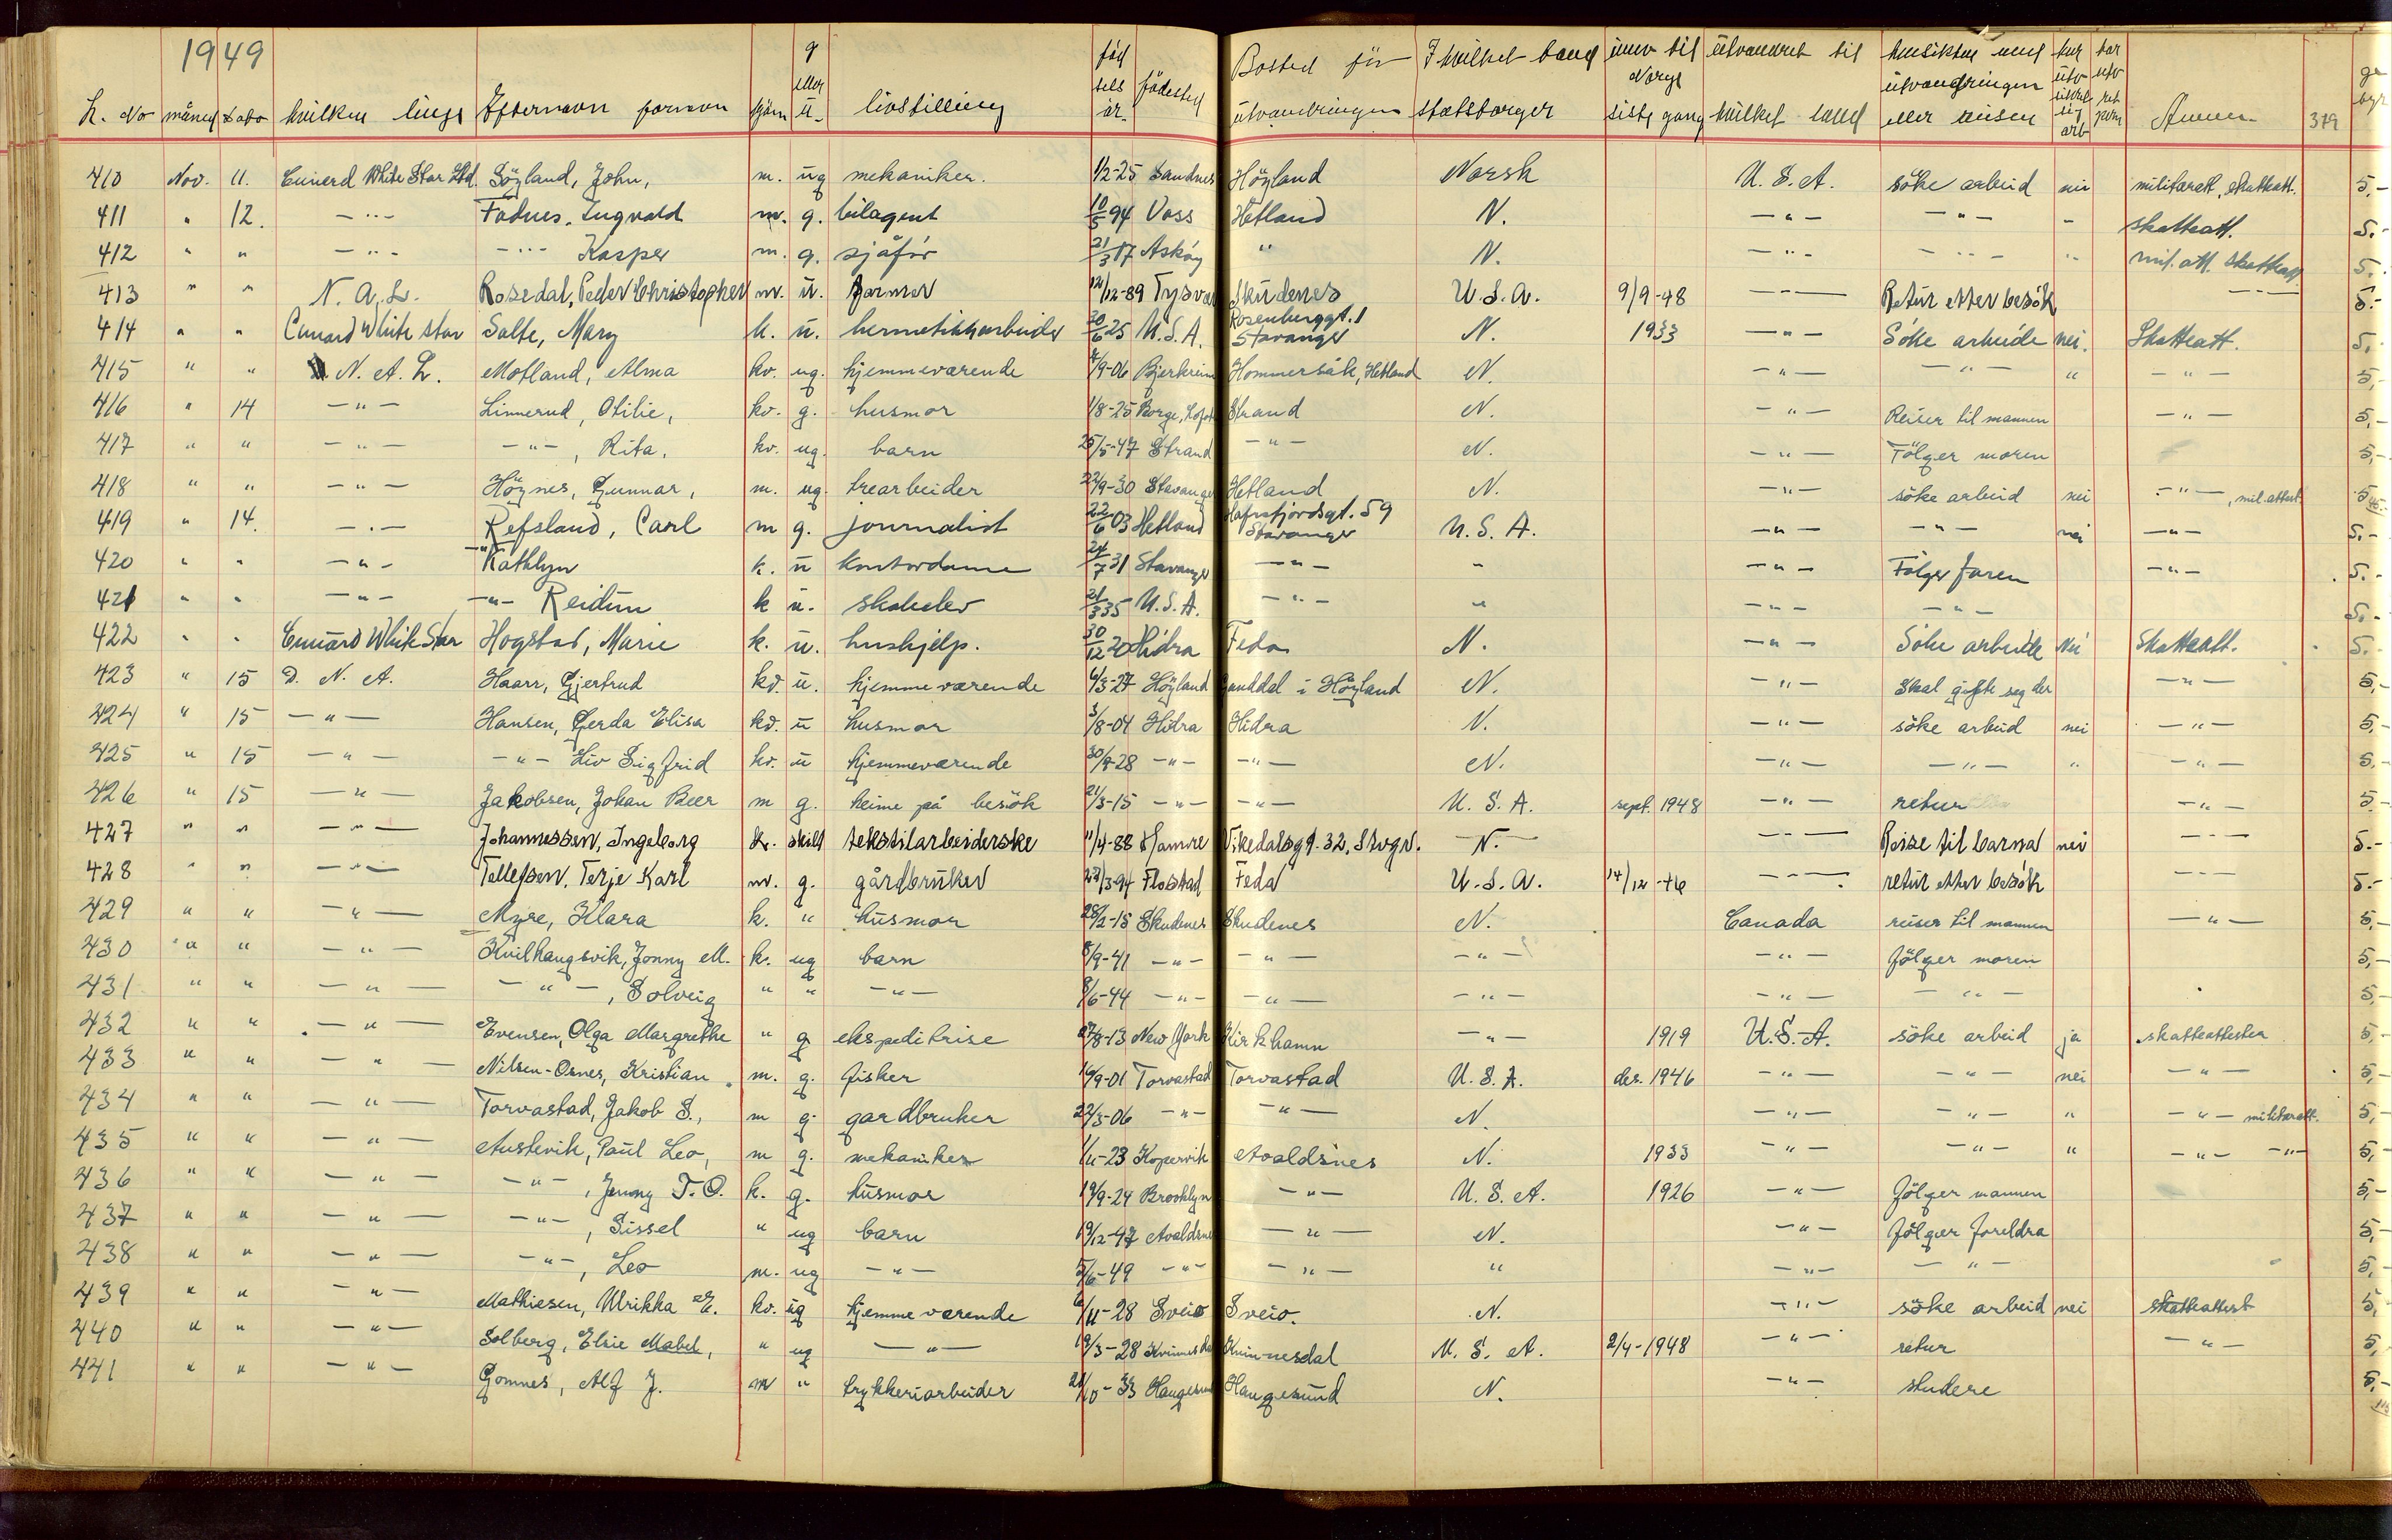 1949
L. No måned Dato hvilken linje Efternavn fornavn kjøn g eller u. livstilling föd sels år. födested Bosted för utvandringen I hvilket land statsborger innv til Norge siste gang utvandret til hvilket land hensikten med utvandringen eller reisen har utv Annen 379 ge byr
410 Nov. 11. Cunerd White Star Ltd. Söyland, John, m. ug mekaniker. 1/2-25 Sandnes Höyland Norsk U.S.A. söke arbeid nei militæratt, skatteatt. 5,-
411 " 12. -"- Fadnes, Ingvald m. g. bilagent 10/5 94 Voss Hetland N. -"- -"- - skatteatt. 5.-
412 " " -"- -"- Kasper m. g. sjåför 21/3 17 Asköy " N. -"- -"- " mil. att. skatteatt 5.
413 " " N. A. L. Rosedal, Peder Christopher m. u. farmer 12/12-89 Tysvær Skudenes U.S.A. 9/9-48 -"- Retur etter besök -"- 5.-
414 " " Cunard White Star Salte, Mary k. u. hermetikkarbeider 20/6 25 U.S.A. Rosenberggt. 1 Stavanger N. 1933 -"- Söke arbeide nei. Skatteatt. 5.
415 " " N. A. L. Motland, Alma kv. ug. hjemmeværende 4/9-06 Bjerkreim Hommersåk, Hetland N. -"- -"- " -"- 5,
416 " 14 -"- Linnerud, Otilie, kv. g. husmor 1/8-25 Borge, Lofot Strand N. -"- Reiser til mannen -"- 5,-
417 " " -"- -"-, Rita, kv. ug. barn 25/5-47 Strand -"- N. -"- Fölger moren 5,-
418 " " -"- Höynes, Gunnar, m. ug. trearbeider 22/9-30 Stavanger Hetland N. -"- söke arbeid nei -"-, mil. attest 5
419 " 14. -"- Refsland, Carl m g. journalist 22/6 03 Hetland Hafrsfjordsgt. 59 Stavanger U.S.A. -"- -"- nei -"- 5.-
420 " " -"- -"- Kathlyn k. u kontordame 24/7 31 Stavanger -"- " -"- Fölger faren -"- 5.-
421 " " -"- -"- Reidun k u. skoleelev 21/3 35 U.S.A. -"- " -"- -"- 5.-
422 " " Cunard White Star Hogstad, Marie k. u. hushjelp. 30/12 20 Hidra Feda N. -"- Söke arbeide Nei Skatteatt. 5.
423 " 15 D. N. A. Haarr, Gjertrud kv. u. hjemmeværende 6/3-27 Höyland Ganddal i Höyland N. -"- Skal gifte seg der -"- 5,-
424 " 15 -"- Hansen, Gerda Elisa kv. u husmor 3/8-04 Hidra Hidra N. -"- söke arbeid nei -"- 5,-
425 " 15 -"- -"- Liv Sigfrid kv. u hjemmeværende 30/8-28 -"- -"- N. -"- -"- " -"- 5,-
426 " 15 -"- Jakobsen, Johan Beer m g. heime på besök 21/3-15 -"- -"- U.S.A. sept. 1948 -"- retur -"- 5
427 " " -"- Johannessen, Ingeborg k. skilt tekstilarbeiderske 11/4-88 Hamre Vikedalsgt. 32, Stvgr. N. -"- Reise til barna nei -"- 5.-
428 " " -"- Tellefsen, Terje Karl m. g. gårdbruker 27/3-94 Flostad Feda U.S.A. 14/12-46 -"- retur etter besök -"- 5.-
429 " " -"- Myre, Klara k. " husmor 28/2-15 Skudenes Skudenes N. Canada reiser til mannen -"- 5,-
430 " " -"- Kvilhaugsvik, Jonny M. k. ug barn 8/9-41 -"- -"- -"- -"- fölger moren 5,-
431 " " -"- -"-, Solveig " " -"- 8/6-44 -"- -"- -"- -"- -"- 5,-
432 " " -"- Evensen, Olga Margrethe " g ekspeditrise 27/8-13 New York Kirkhamn -"- 1919 U.S.A. söke arbeid ja skatteattester 5,-
433 " " -"- Nilsen-Osnes, Kristian m. g. fisker 19/9-01 Torvastad Torvastad U.S.A. des. 1946 -"- -"- nei -"- 5,-
434 " " -"- Torvastad, Jakob S., m g. gardbruker 22/3-06 -"- -"- N. -"- -"- " -"- militæratt. 5,-
435 " " -"- Austevik, Paul Leo, m g. mekaniker 1/11-23 Kopervik Avaldsnes N. 1933 -"- -"- " -"- -"- 5,-
436 " " -"- -"-, Jenny T. O. k. g. husmor 19/9-24 Brooklyn -"- U.S.A. 1926 -"- fölger mannen 5,-
437 " " -"- -"-, Sissel " ug barn 19/12-47 Avaldsne -"- N. -"- fölger foreldra 5,-
438 " " -"- -"-, Leo m. ug -"- 5/6-49 -"- -"- " -"- -"- 5,-
439 " " -"- Mathiesen, Ulrikka E. kv. ug hjemmeværende 6/11-28 Sveio Sveio. N. -"- söke arbeid nei skatteattest 5,
440 " " -"- Solberg, Elsie Mabel, " ug -"- 19/3-28 Kvinnesda Kvinnesdal U.S.A. 2/4-1948 -"- retur -"- 5,
441 " " -"- Gomnes, Alf J. m " trykkeriarbeider 28/10-33 Haugesun Haugesund N. -"- studere 5,-